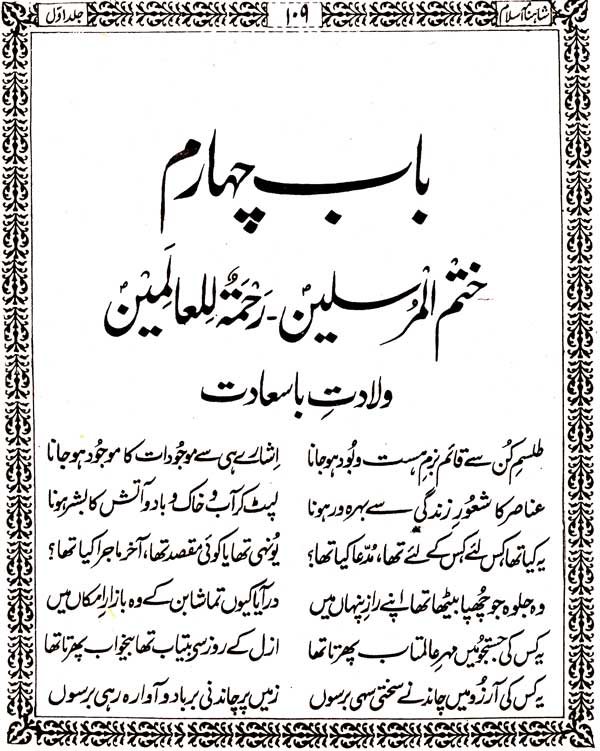 شاہنامہ اسلام ۱۰۹ جلد اوّل
باب چہارم
ختْم المُرسلین - رَحْمَةٌ لِّلعالَمِیْن
ولادتِ باسعادت
طلسمِ کُن سے قائم بزمِ ہست و بُود ہو جانا اشارے ہی سے موجُودات کا موجُود ہو جانا
عناصر کا شعُورِ زندگی سے بہرہ ور ہونا لپٹ کر آب و خاک و باد و آتش کا بشر ہونا
یہ کیا تھا کس لئے کس کے لئے تھا، مُدّعا کیا تھا؟ یُونہی تھا یا کوئی مقصد تھا، آخر ماجرا کیا تھا؟
وہ جلوہ جو چُھپا بیٹھا تھا اپنے رازِ پنہاں میں در آیا کیوں تماشا بن کے وہ بازارِ امکاں میں
یہ کس کی جستجو میں مہرِ عالمتاب پھرتا تھا ازل کے روز سے بیتاب تھا بیخواب پھرتا تھا
یہ کس کی آرزو میں چاند نے سختی سہی برسوں زمیں پر چاندنی برباد و آوارہ رہی برسوں